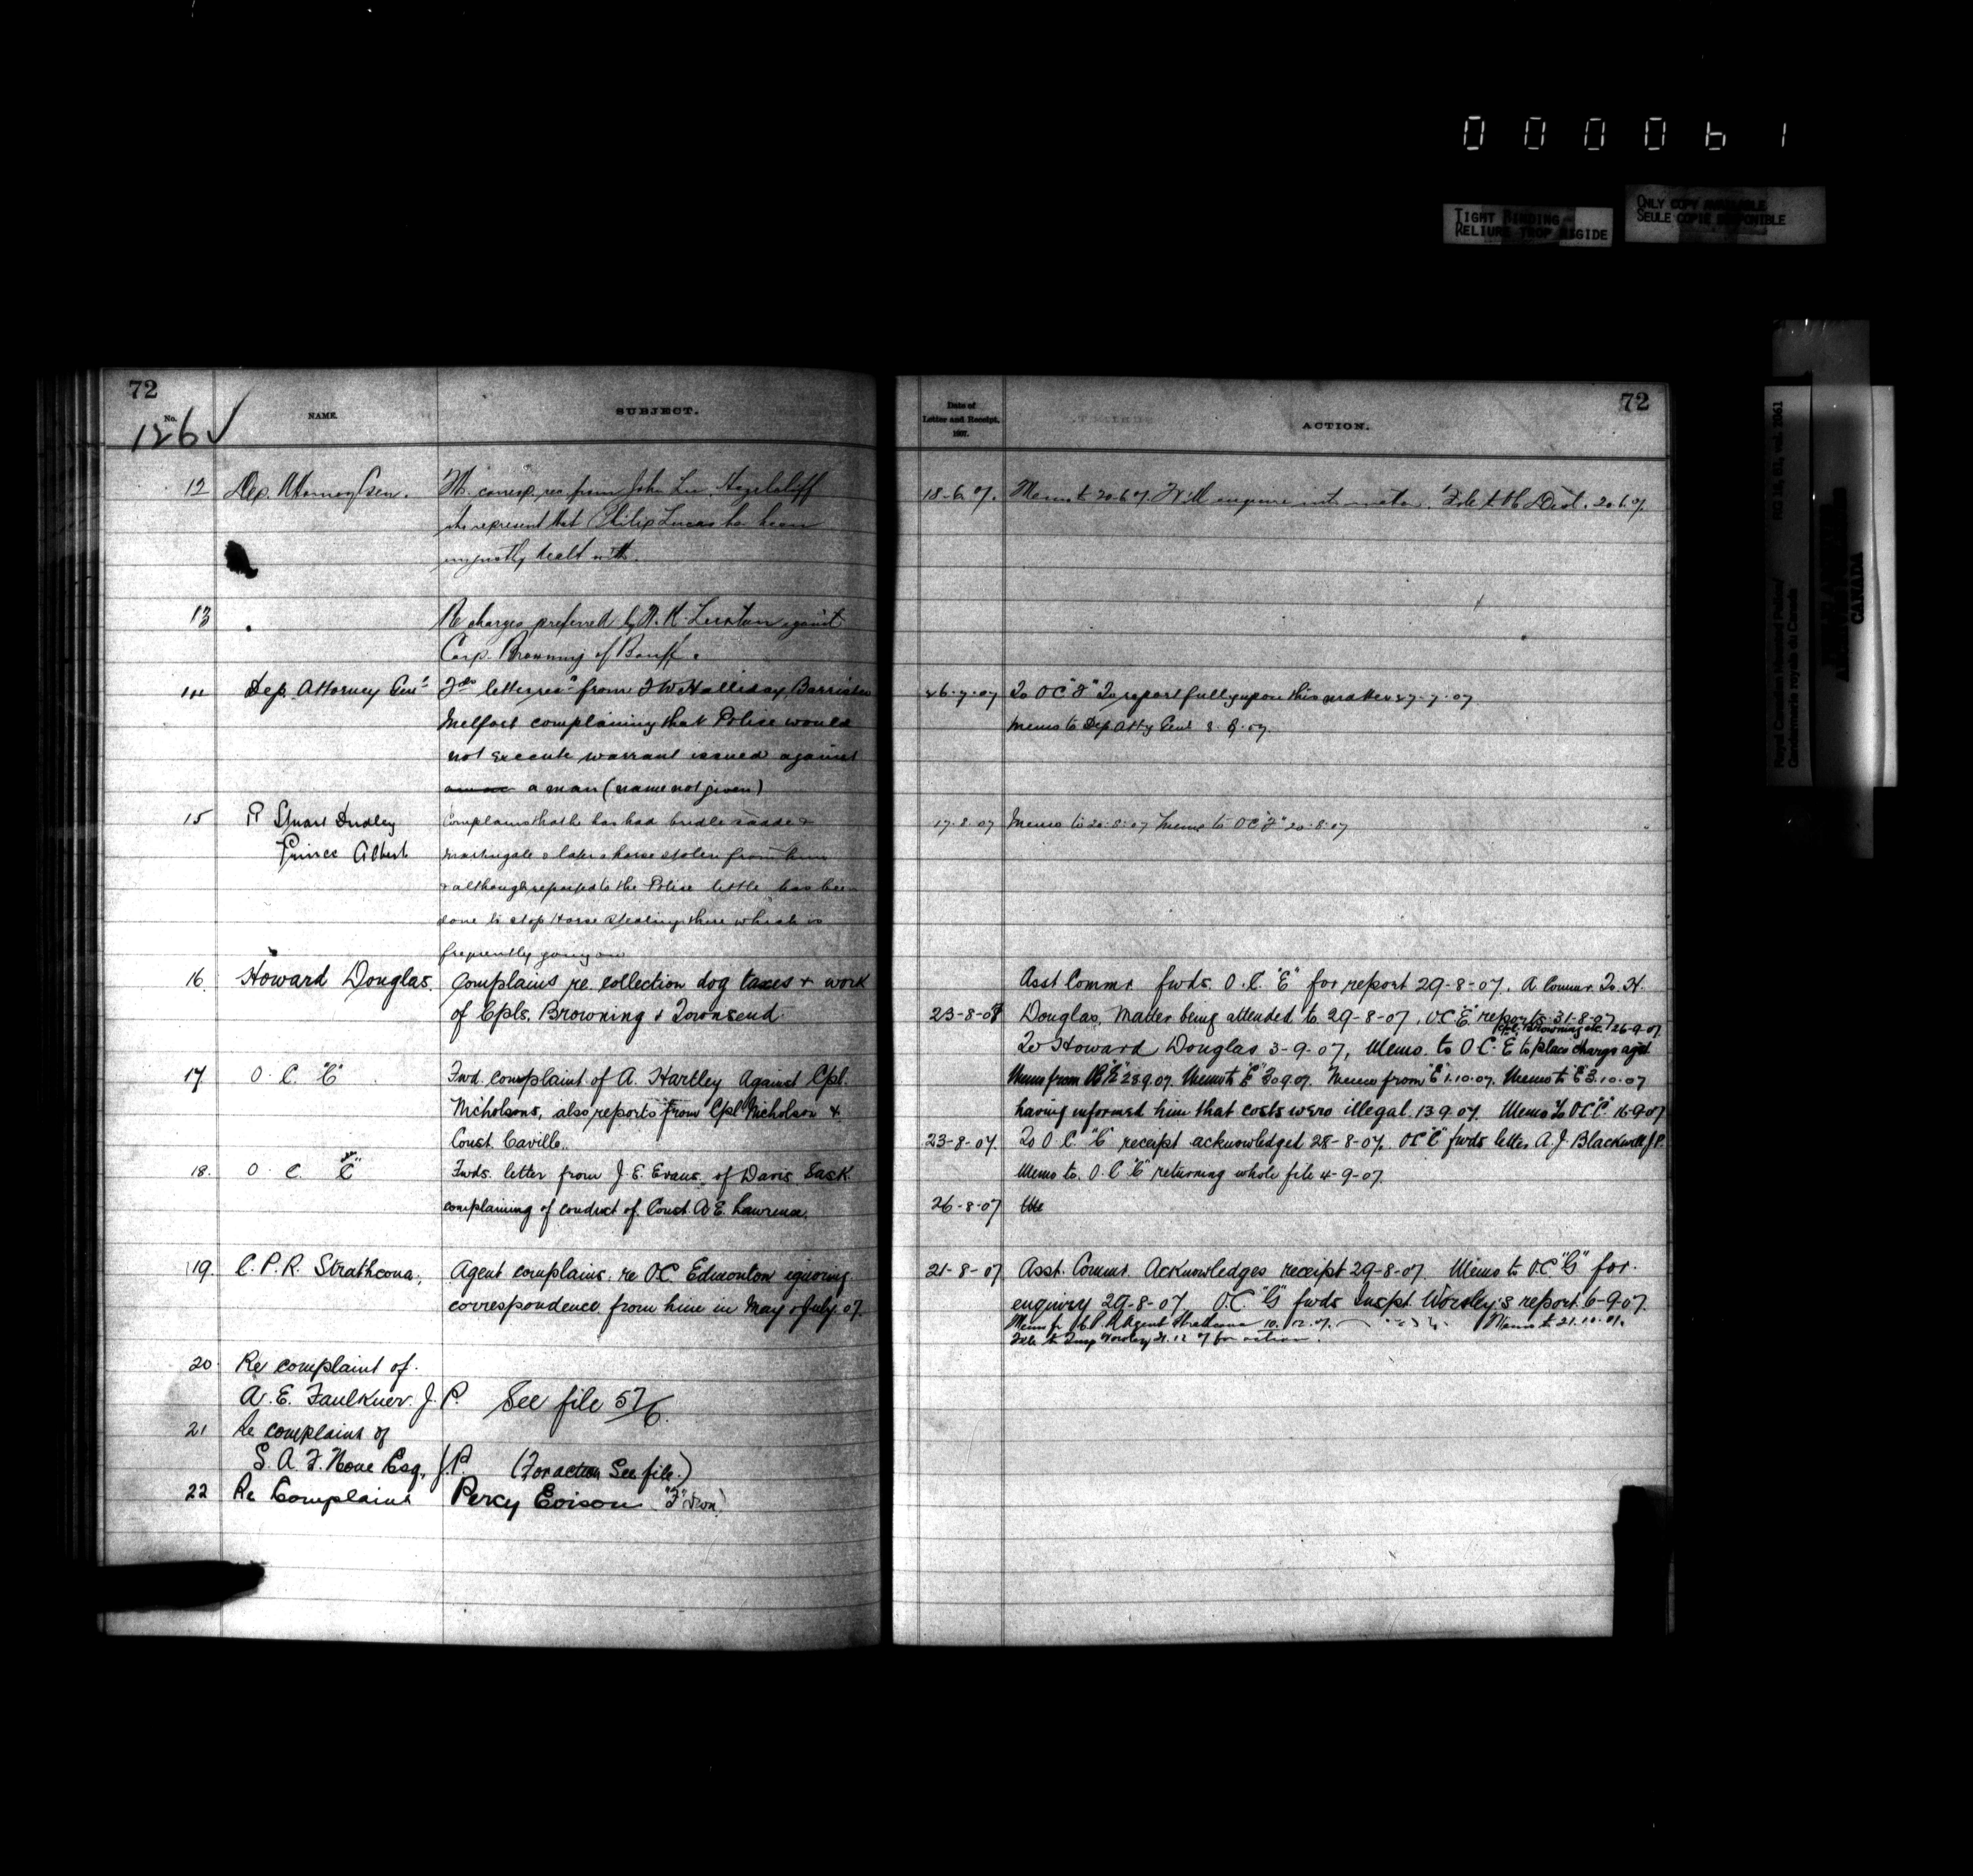 000061
TIGHT BINDING
RELIURE TROP RIGIDE
ONLY COPY AVAILABLE
SEULE COPIE DISPONIBLE
Royal Canadian Mounted Police/
Gendarmerie royale du Canada
RG 18, B1, vol. 2061
CANADA
72
No.
126 ✓
NAME.
SUBJECT.
12 Dep. Attorney Gen.
corresp rec from John
represent that Philip Lucas has been
unjustly dealt with.
13
Re charges preferred by against
Corp. Browning of Banff.
14 Dep. Attorney Genl
letter from Halliday Barrister
Melfort complaining that Police would
not execute warrant issued against
a man (name not given)
15 Stuart Dudley
Prince Albert
Complains that he has had bridle saddle
martingale & later a horse stolen from him
& although reported to the Police little has been
done to stop Horse Stealing there which is
frequently going on
16. Howard Douglas.
Complains re. collection dog taxes & work
of Cpls. Browning & Townsend.
17 O. C. "C"
Fwd. complaint of A. Hartley against Cpl.
Nicholsons, also reports from Cpl Nicholson &
Const. Caville.
18. O. C. "C"
Fwds. letter from J. E. Evans of Davis Sask.
complaining of conduct of Const. A. E. Lawrence.
19. C. P. R. Strathcona.
Agent complains. re O.C. Edmonton ignoring
correspondence from him in May & July 07.
20. Re complaint of.
A. E. Faulkner. J. P. See file 57/6.
21 Re complaint of
S. A. F. Esq. J.P. (For action See file.)
22 Re Complaint Percy "F"
72
Date of
Letter and Receipt.
1907.
ACTION.
18-6-07. Memo to 20-6-07. Will enquire into matter. 20.6.07
26-7-07 To OC "F" To report fully upon this matter 27-7-07
Memo to Dep Atty Genl 8-07.
17-8-07 Memo to 20-8-07 Memo to OC "F" 20-8-07
Asst Commr fwds. O. C. "E" for report 29-8-07. A Commr. To H.
23-8-07 Douglas, Matter being attended to 29-8-07. O.C "E" reports 31-8-07
Cpl. Browning etc. 26-9-07
To Howard Douglas 3-9-07, Memo. to O.C. E to place charge agst
Memo from 28.9.07. Memo to "E" 30.9.07. Memo from "E" 1.10.07. Memo to "E" 3.10.07
having informed him that costs were illegal. 13 9.07. Memo to OC "C" 16-9-07
23-8-07. To O.C. "C" receipt acknowledged 28-8-07. OC "C" fwds letter A. J. Blackwell J.P.
Memo to. O.C "C" returning whole file 4-9-07.
26-8-07
21-8-07 Asst. Commr. Acknowledges receipt 29-8-07. Memo to O.C. "G" for
enquiry 29-8-07. O.C. "G" fwds Inspt. Worsley's report. 6-9-07.
Memo fr C.P.R Agent Strathcona 10. 12. 07. Memo to
File to Insp Worsley for action.